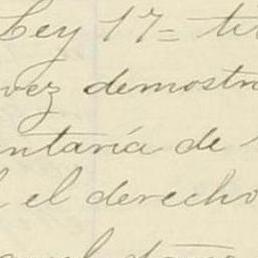 Ley 17= tit
vez demostr
ntaría de
el derecho